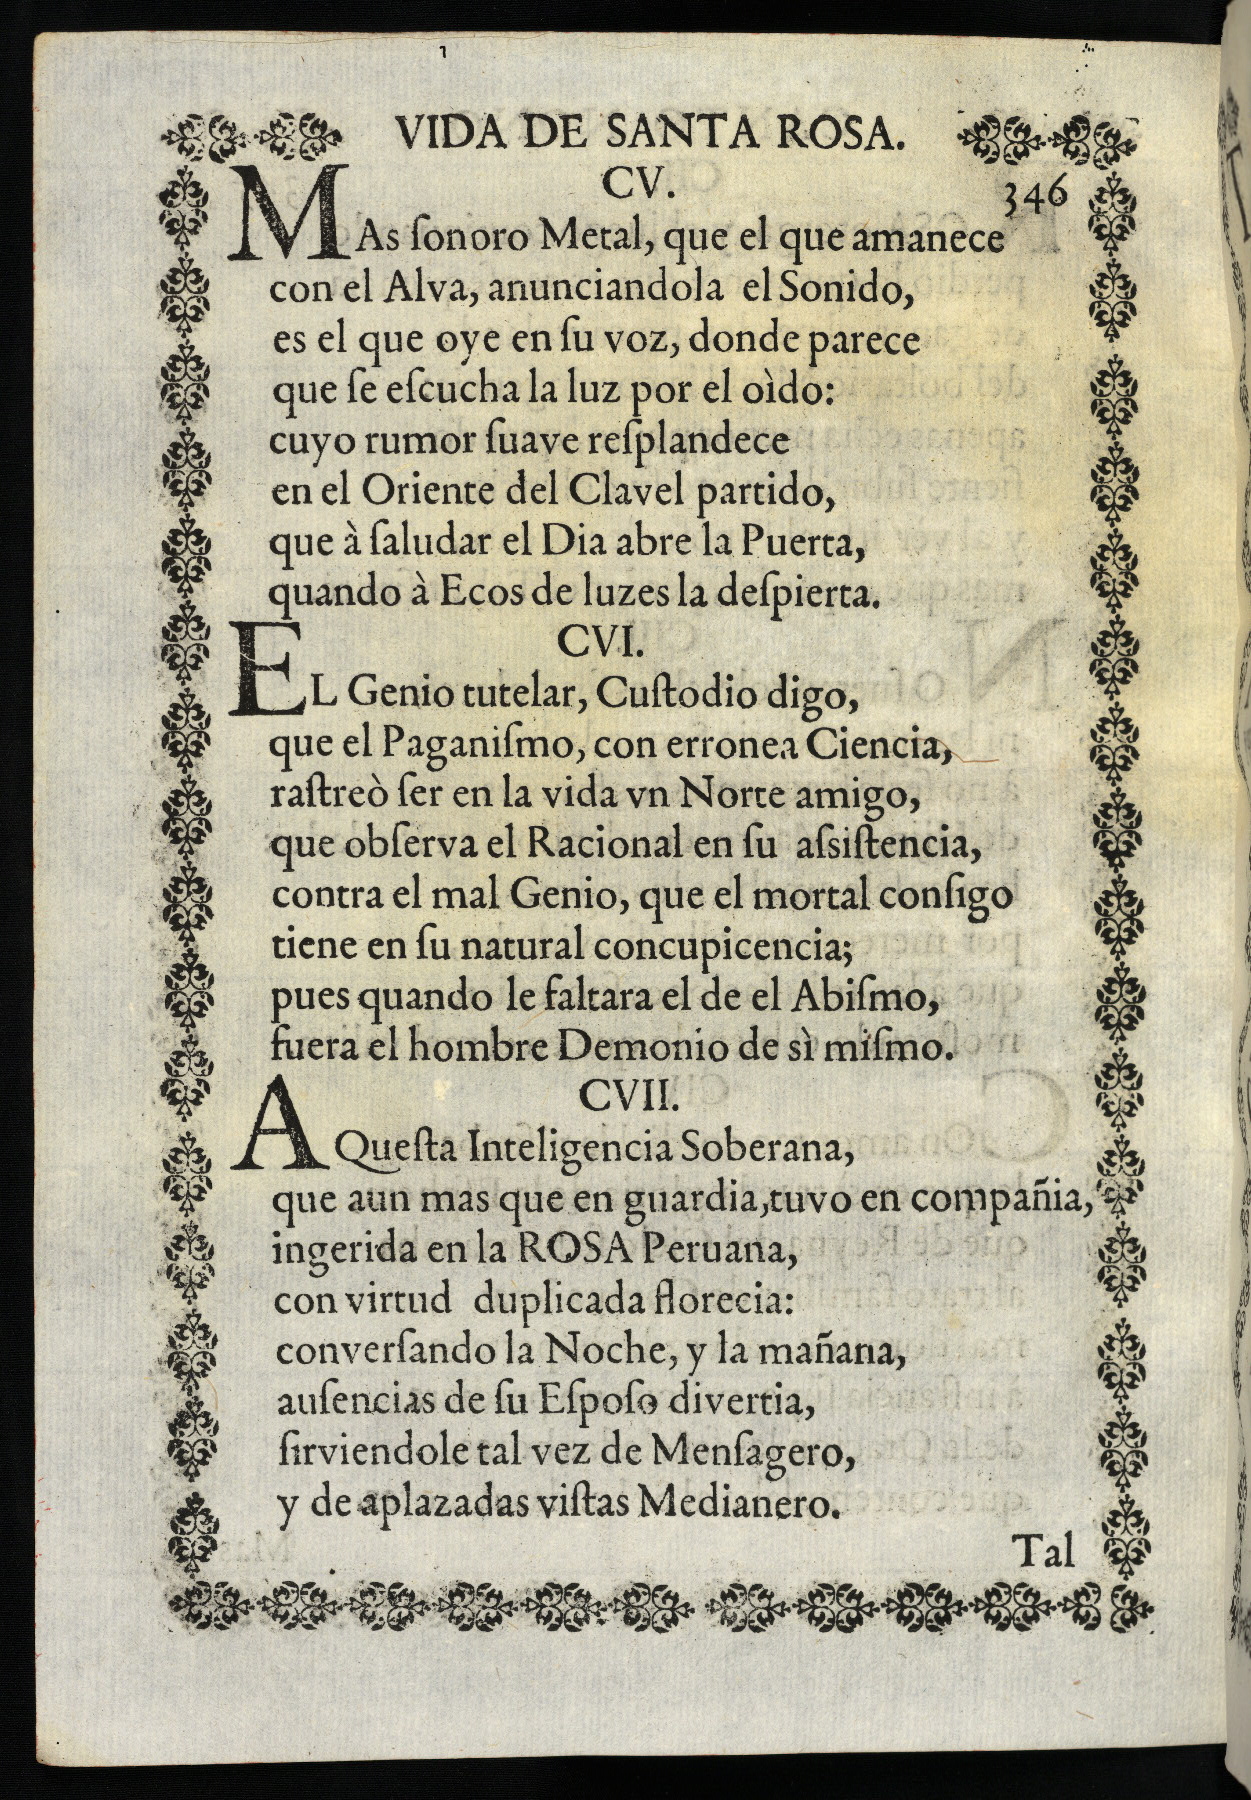 VIDA DE SANTA ROSA.
CV.
346
MAs ſonoro Metal, que el que amanece
con el Alva, anunciandola el Sonido,
es el que oye en ſu voz, donde parece
que ſe eſcucha la luz por el oìdo:
cuyo rumor ſuave reſplandece
en el Oriente del Clavel partido,
que à ſaludar el Dia abre la Puerta,
quando à Ecos de luzes la deſpierta.
CVI.
EL Genio tutelar, Cuſtodio digo,
que el Paganiſmo, con erronea Ciencia,
raſtreò ſer en la vida vn Norte amigo,
que obſerva el Racional en ſu aſsiſtencia,
contra el mal Genio, que el mortal conſigo
tiene en ſu natural concupicencia;
pues quando le faltara el de el Abiſmo,
fuera el hombre Demonio de sì miſmo.
CVII.
AQueſta Inteligencia Soberana,
que aun mas que en guardia, tuvo en compañia,
ingerida en la ROSA Peruana,
con virtud duplicada florecia:
converſando la Noche, y la mañana,
auſencias de ſu Eſpoſo divertia,
ſirviendole tal vez de Menſagero,
y de aplazadas viſtas Medianero.
Tal